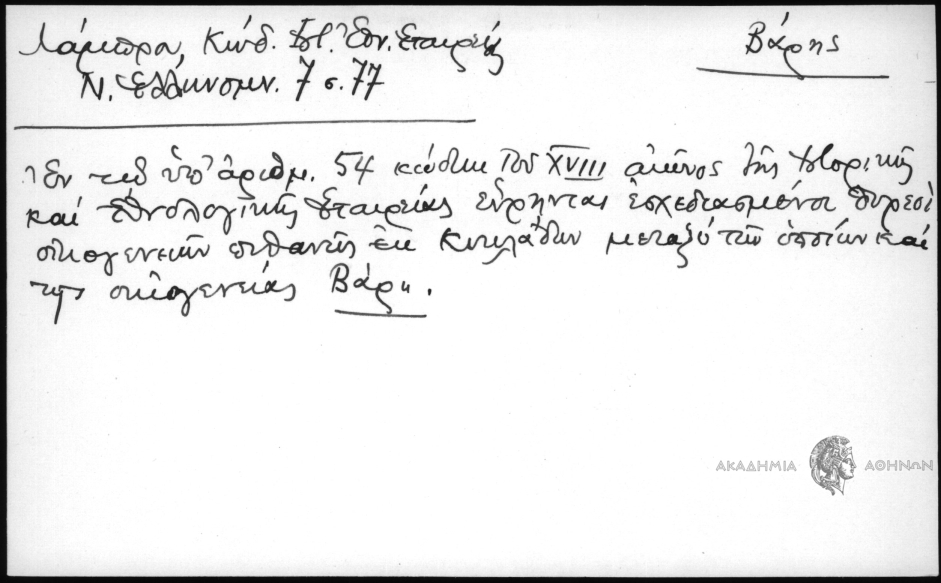 Λάμπρου, Κώδ. Ἱστ. Ἐθν. Ἑταιρείας
Βάρης
Ν. Ἑλληνομν. 7 σ. 77
Ἐν τῷ ὑπ' ἀριθμ. 54 κώδικι τοῦ XVIII αἰῶνος τῆς Ἱστορικῆς
καὶ Ἐθνολογικῆς Ἑταιρείας εὕρηνται ἐσχεδιασμένοι θυρεοὶ
οἰκογενειῶν πιθανῶς ἐκ Κυκλάδων μεταξὺ τῶν ὁποίων καὶ
τῆς οἰκογενείας Βάρη.
ΑΚΑΔΗΜΙΑ ΑΘΗΝΩΝ